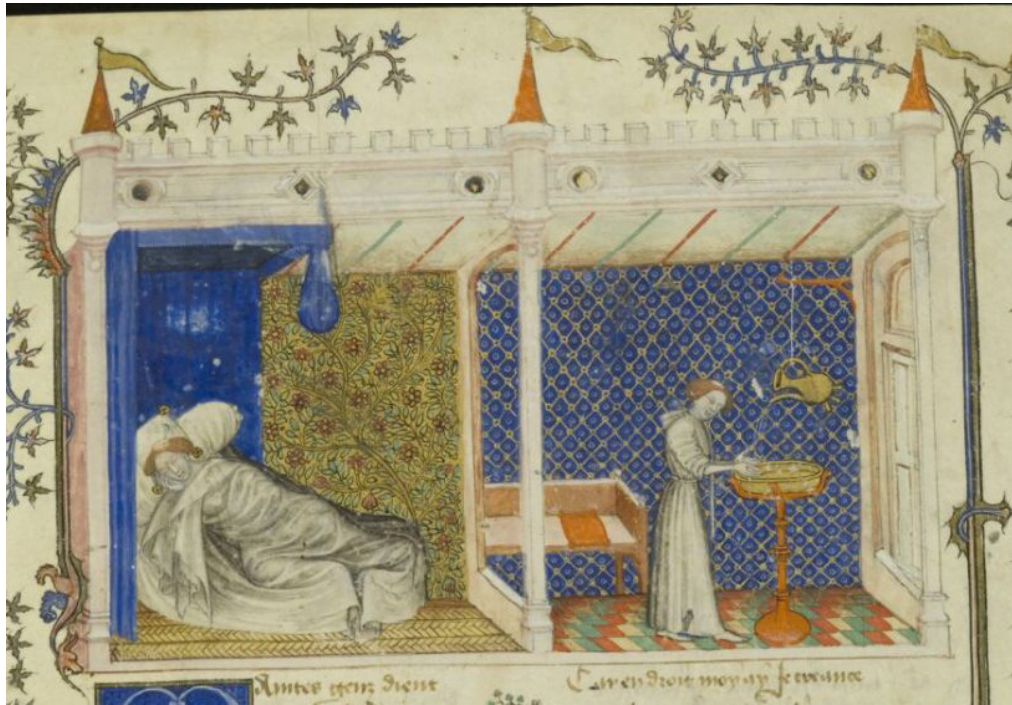 Aintes genz dient
Car en droit moy ay je creance